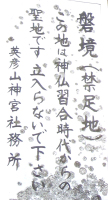 磐境(禁足地)
この地は神仏習合時代からの
聖地です立入らないで下さい
英彦山神宮社務所